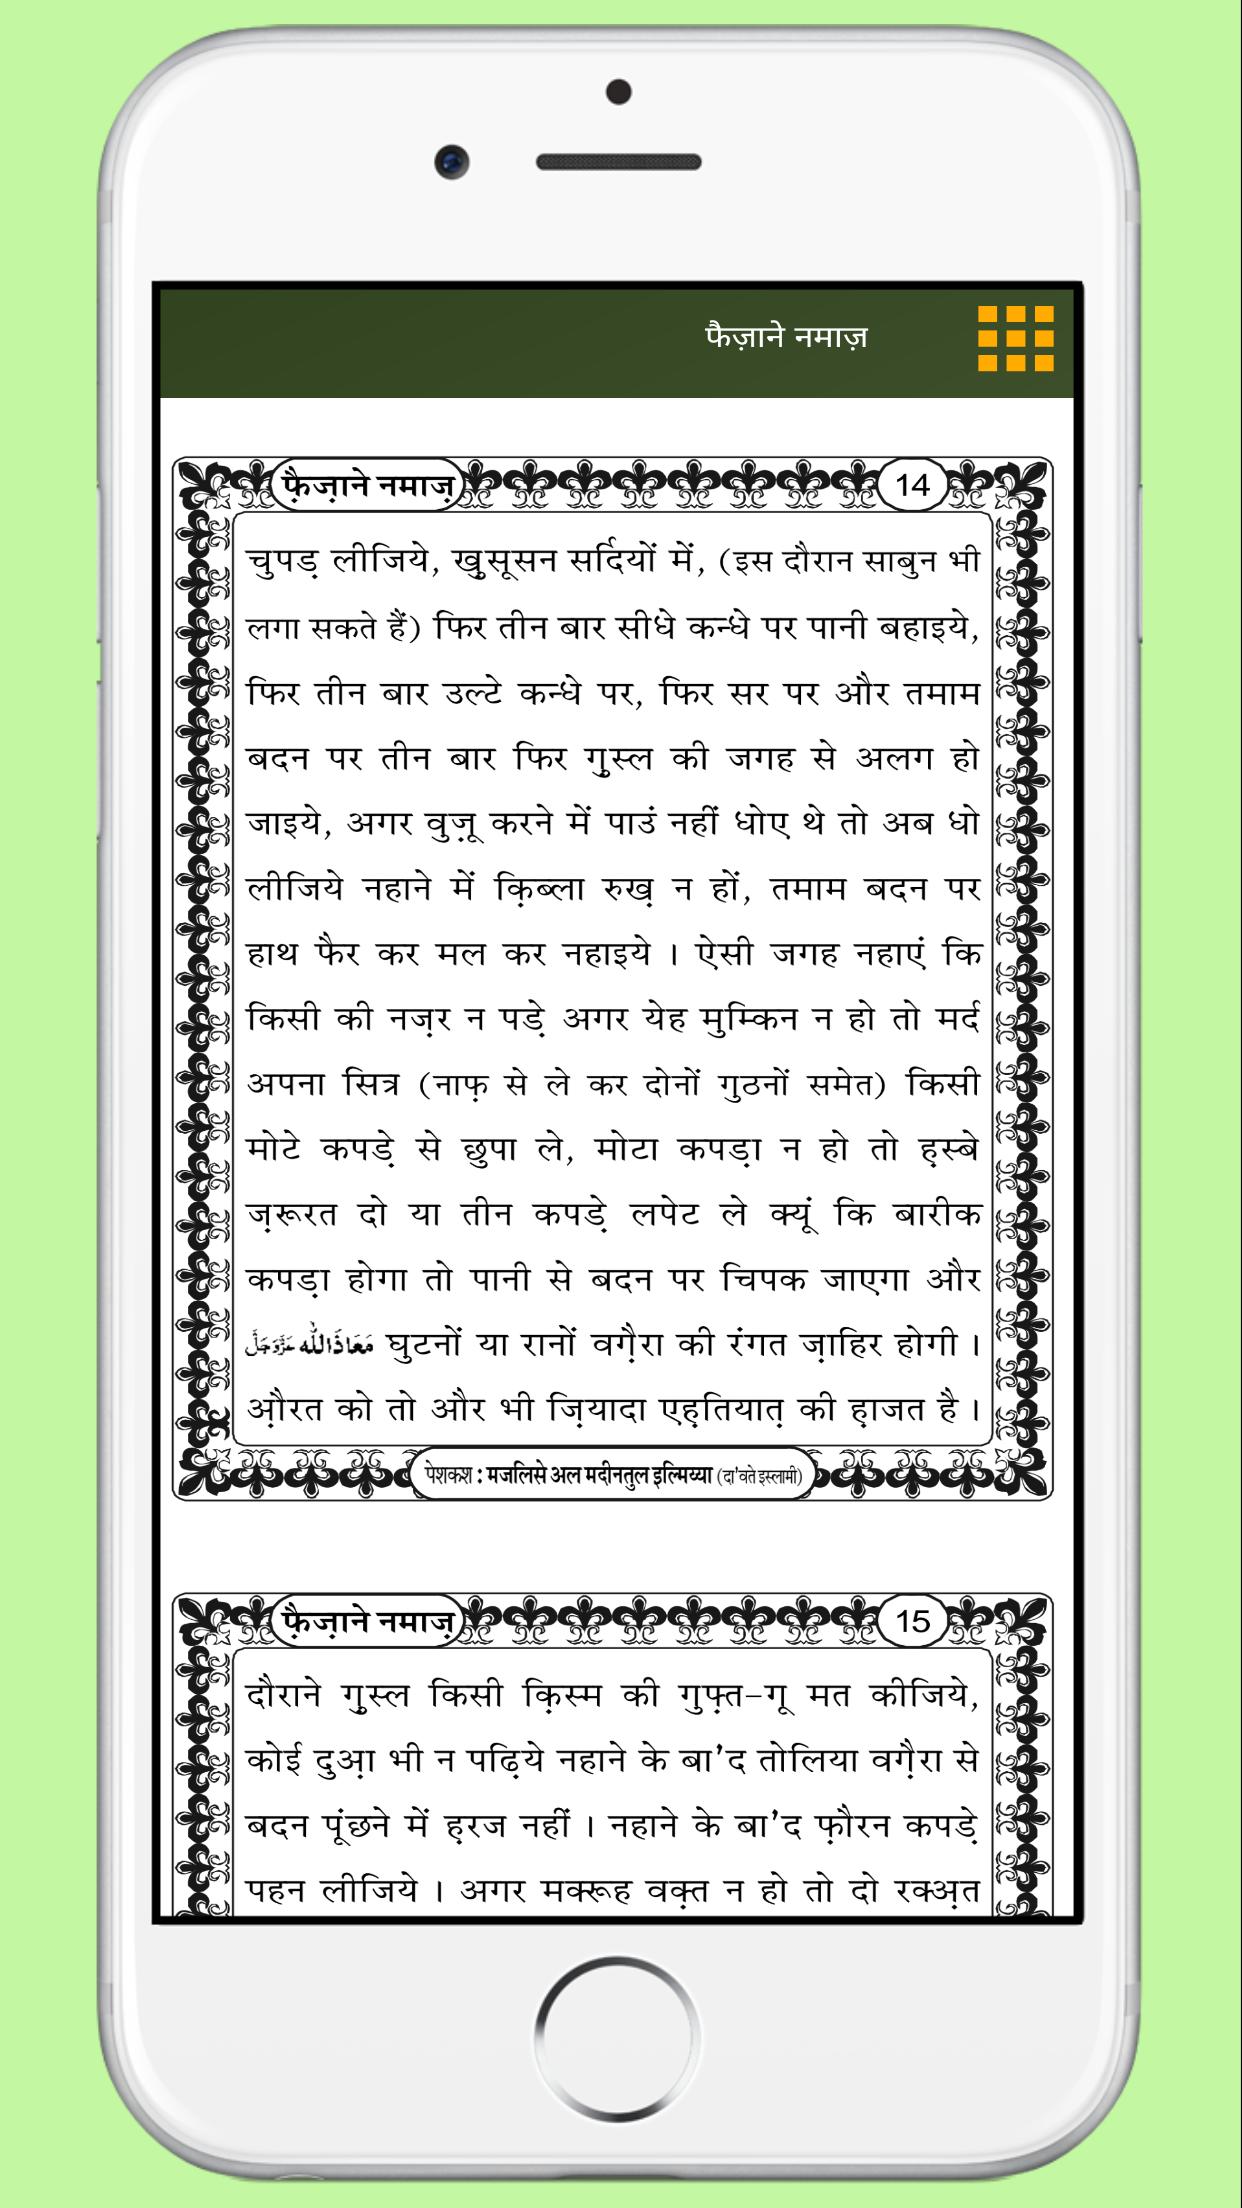 फैज़ाने नमाज़
फ़ैज़ाने नमाज़
14
चुपड़ लीजिये, खुसूसन सर्दियों में, (इस दौरान साबुन भी
लगा सकते हैं) फिर तीन बार सीधे कन्धे पर पानी बहाइये,
फिर तीन बार उल्टे कन्धे पर, फिर सर पर और तमाम
बदन पर तीन बार फिर गु़स्ल की जगह से अलग हो
जाइये, अगर वुज़ू करने में पाउं नहीं धोए थे तो अब धो
लीजिये नहाने में क़िब्ला रुख़ न हों, तमाम बदन पर
हाथ फैर कर मल कर नहाइये । ऐसी जगह नहाएं कि
किसी की नज़र न पड़े अगर येह मुम्किन न हो तो मर्द
अपना सित्र (नाफ़ से ले कर दोनों गुठनों समेत) किसी
मोटे कपड़े से छुपा ले, मोटा कपड़ा न हो तो ह़स्बे
ज़रूरत दो या तीन कपड़े लपेट ले क्यूं कि बारीक
कपड़ा होगा तो पानी से बदन पर चिपक जाएगा और
مَعَاذَاللّٰه عَزَّوَجَلَّ घुटनों या रानों वग़ैरा की रंगत ज़ाहिर होगी ।
औ़रत को तो और भी ज़ियादा एह़तियात़ की ह़ाजत है ।
पेशकश : मजलिसे अल मदीनतुल इल्मिय्या (दा'वते इस्लामी)
फ़ैज़ाने नमाज़
15
दौराने गु़स्ल किसी क़िस्म की गुफ़्त-गू मत कीजिये,
कोई दुआ़ भी न पढ़िये नहाने के बा'द तोलिया वग़ैरा से
बदन पूंछने में ह़रज नहीं । नहाने के बा'द फ़ौरन कपड़े
पहन लीजिये । अगर मक्रूह वक़्त न हो तो दो रक्अ़त